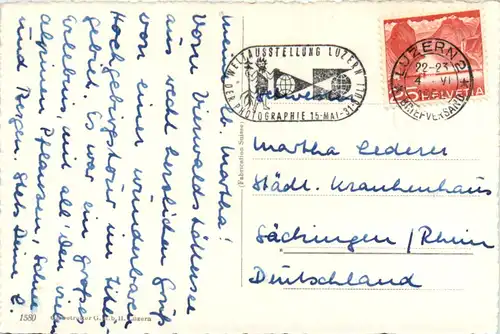 meine lb. Martha!
Vom Vierwaldstättersee
aus recht herzlichen Gruß
von einer wunderbaren
Hochgebirgstour im Titlis-
gebiet. Es war ein großes
Erlebnis mit all' den vielen
alpinen Pflanzen, Schnee
und Bergen. Stets Deine
(Fabrication Suisse)
1580
Luzern
WELTAUSSTELLUNG LUZERN
DER PHOTOGRAPHIE 15·MAI-31·JULI
LUZERN 2
22-23
4.VI
BRIEFVERSAND
HELVETIA
Schwester
Martha Lederer
Städt. Krankenhaus
Säckingen/Rhein
Deutschland